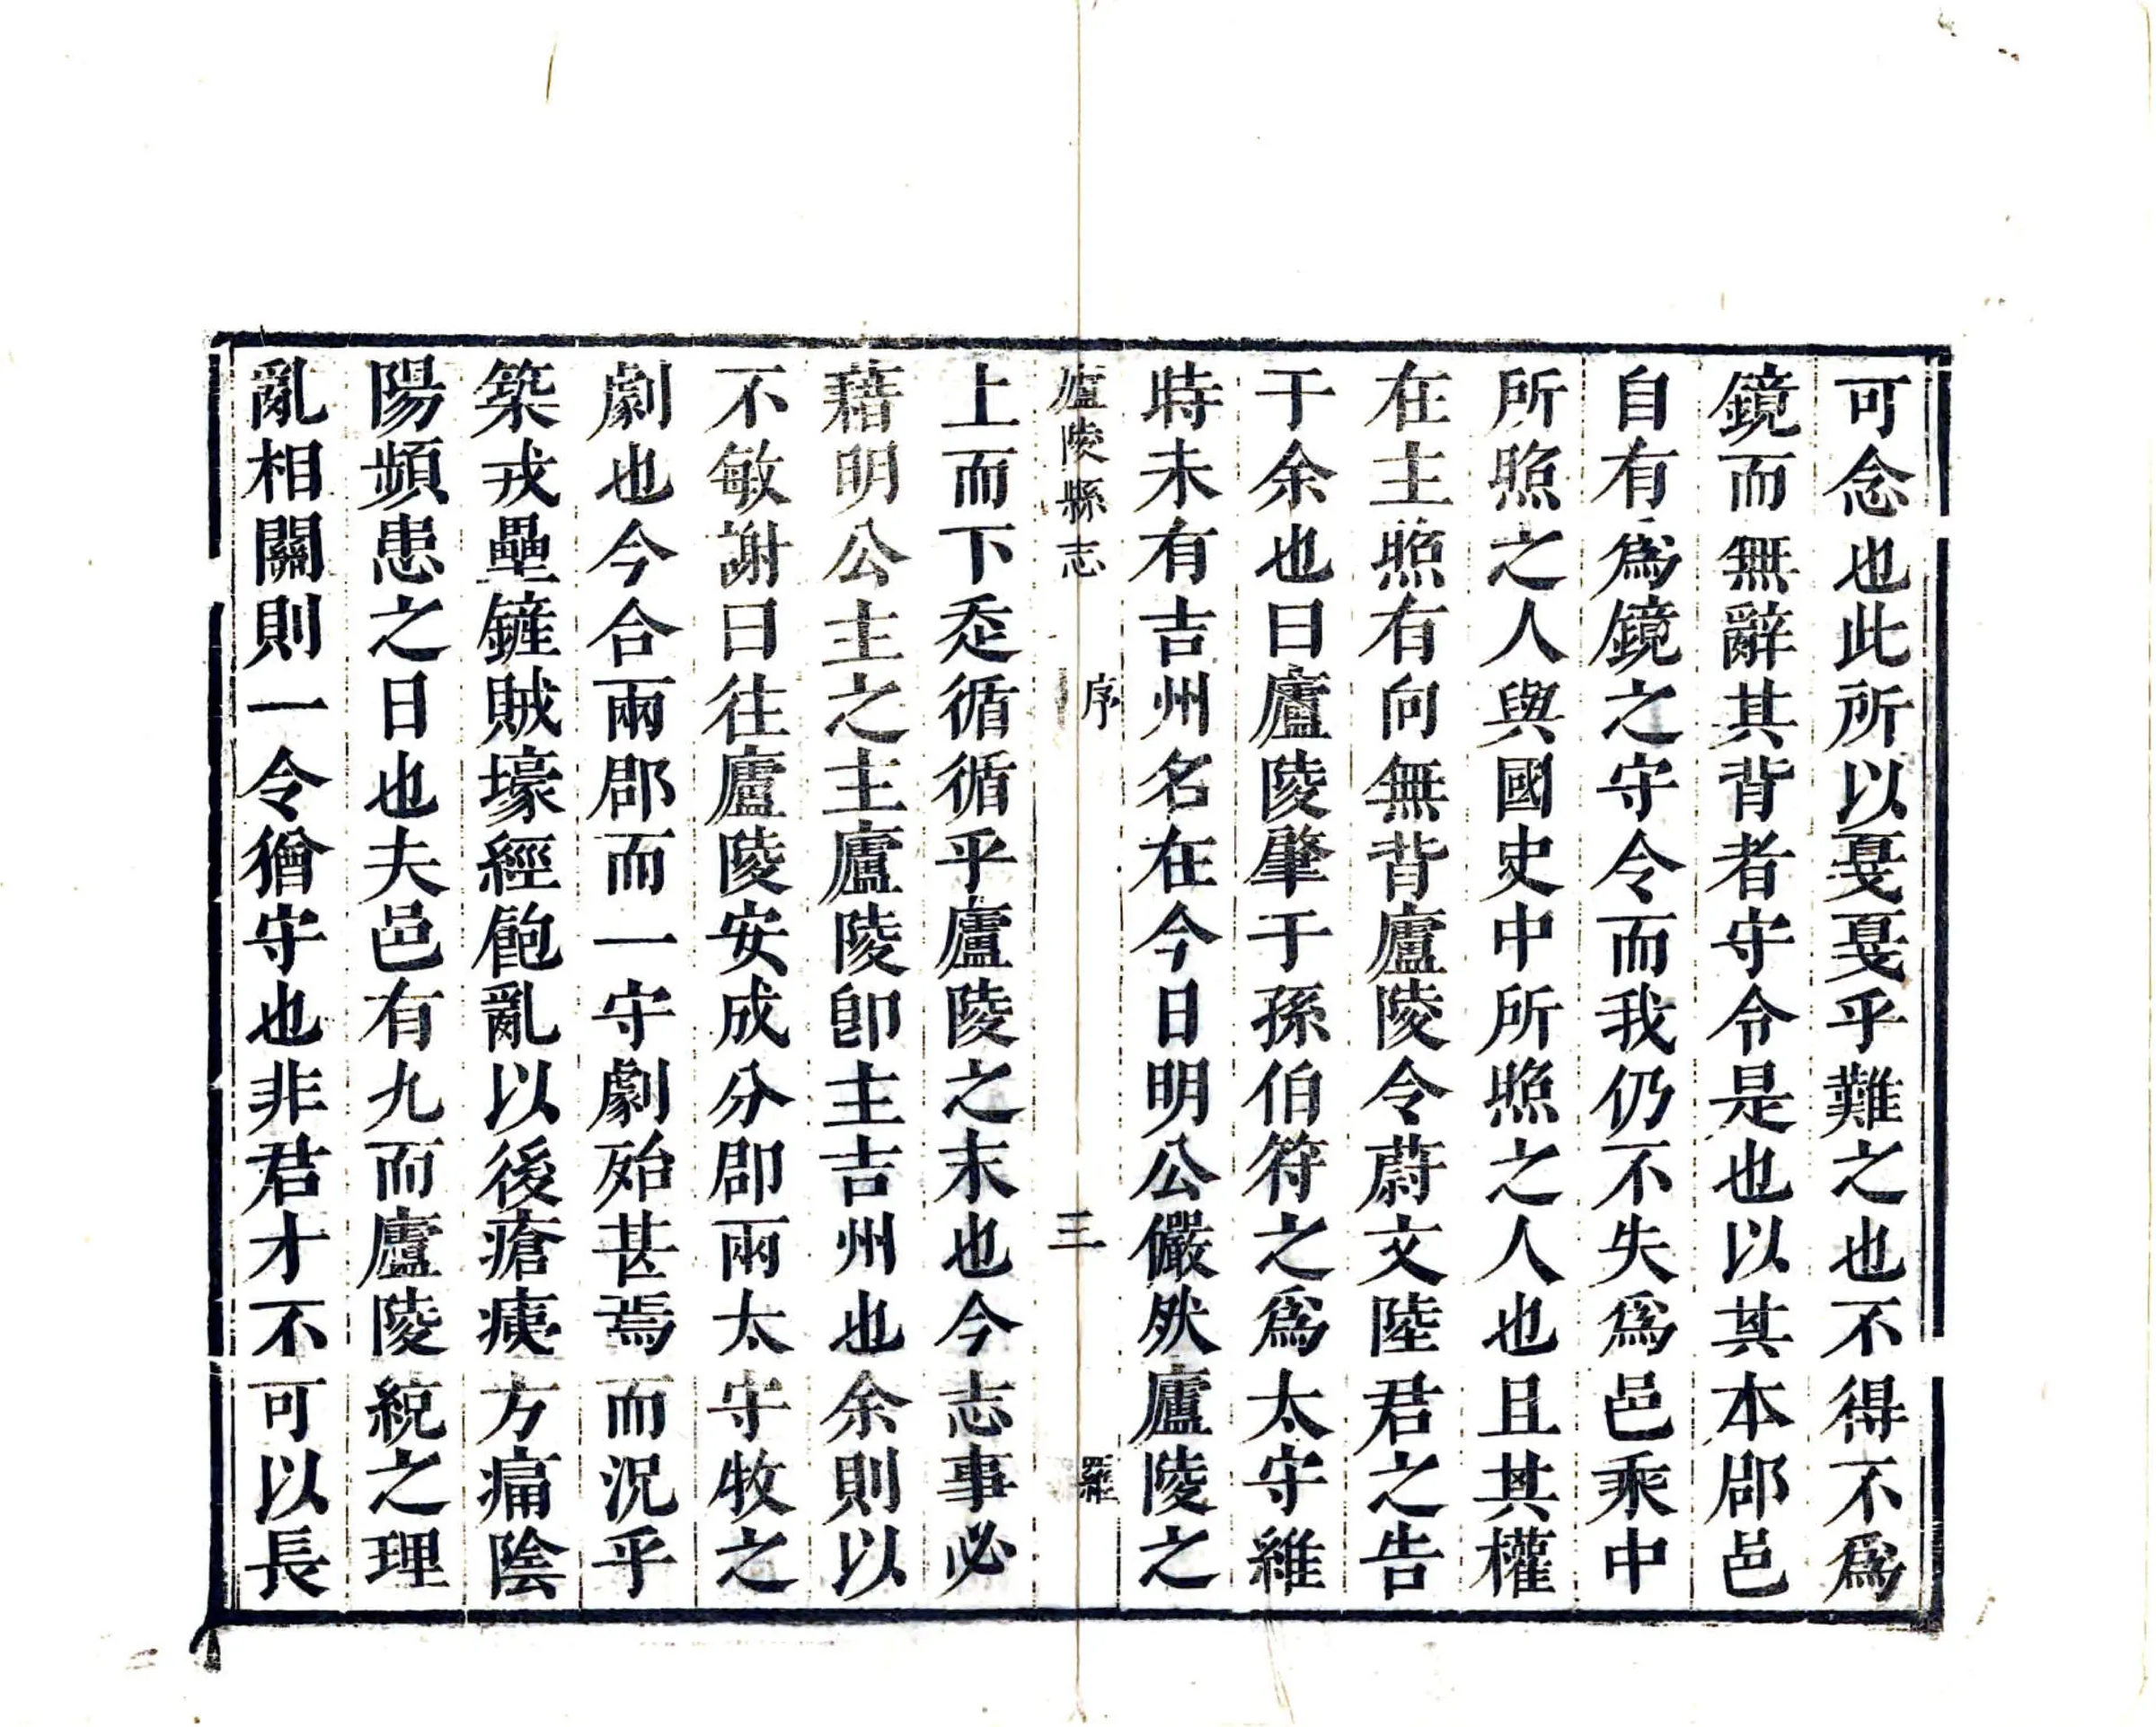 可念也此所以戛戛乎難之也不得不爲
鏡而無辭其背者守令是也以其本郡邑
自有爲鏡之守令而我仍不失爲邑乘中
所照之人與國史中所照之人也且其權
在主照有向無背廬陵令蔚文陸君之告
于余也曰廬陵肇于孫伯符之爲太守維
時未有吉州名在今日明公儼然廬陵之
廬陵縣志
序
三
羅
上而下忝循循乎廬陵之末也今志事必
藉明公主之主廬陵卽主吉州也余則以
不敏謝曰往廬陵安成分郡兩太守牧之
劇也今合兩郡而一守劇殆甚焉而況乎
築戎壘鏟賊壕經飽亂以後瘡痍方痛陰
陽頻患之日也夫邑有九而廬陵統之理
亂相關則一令獪守也非君才不可以長